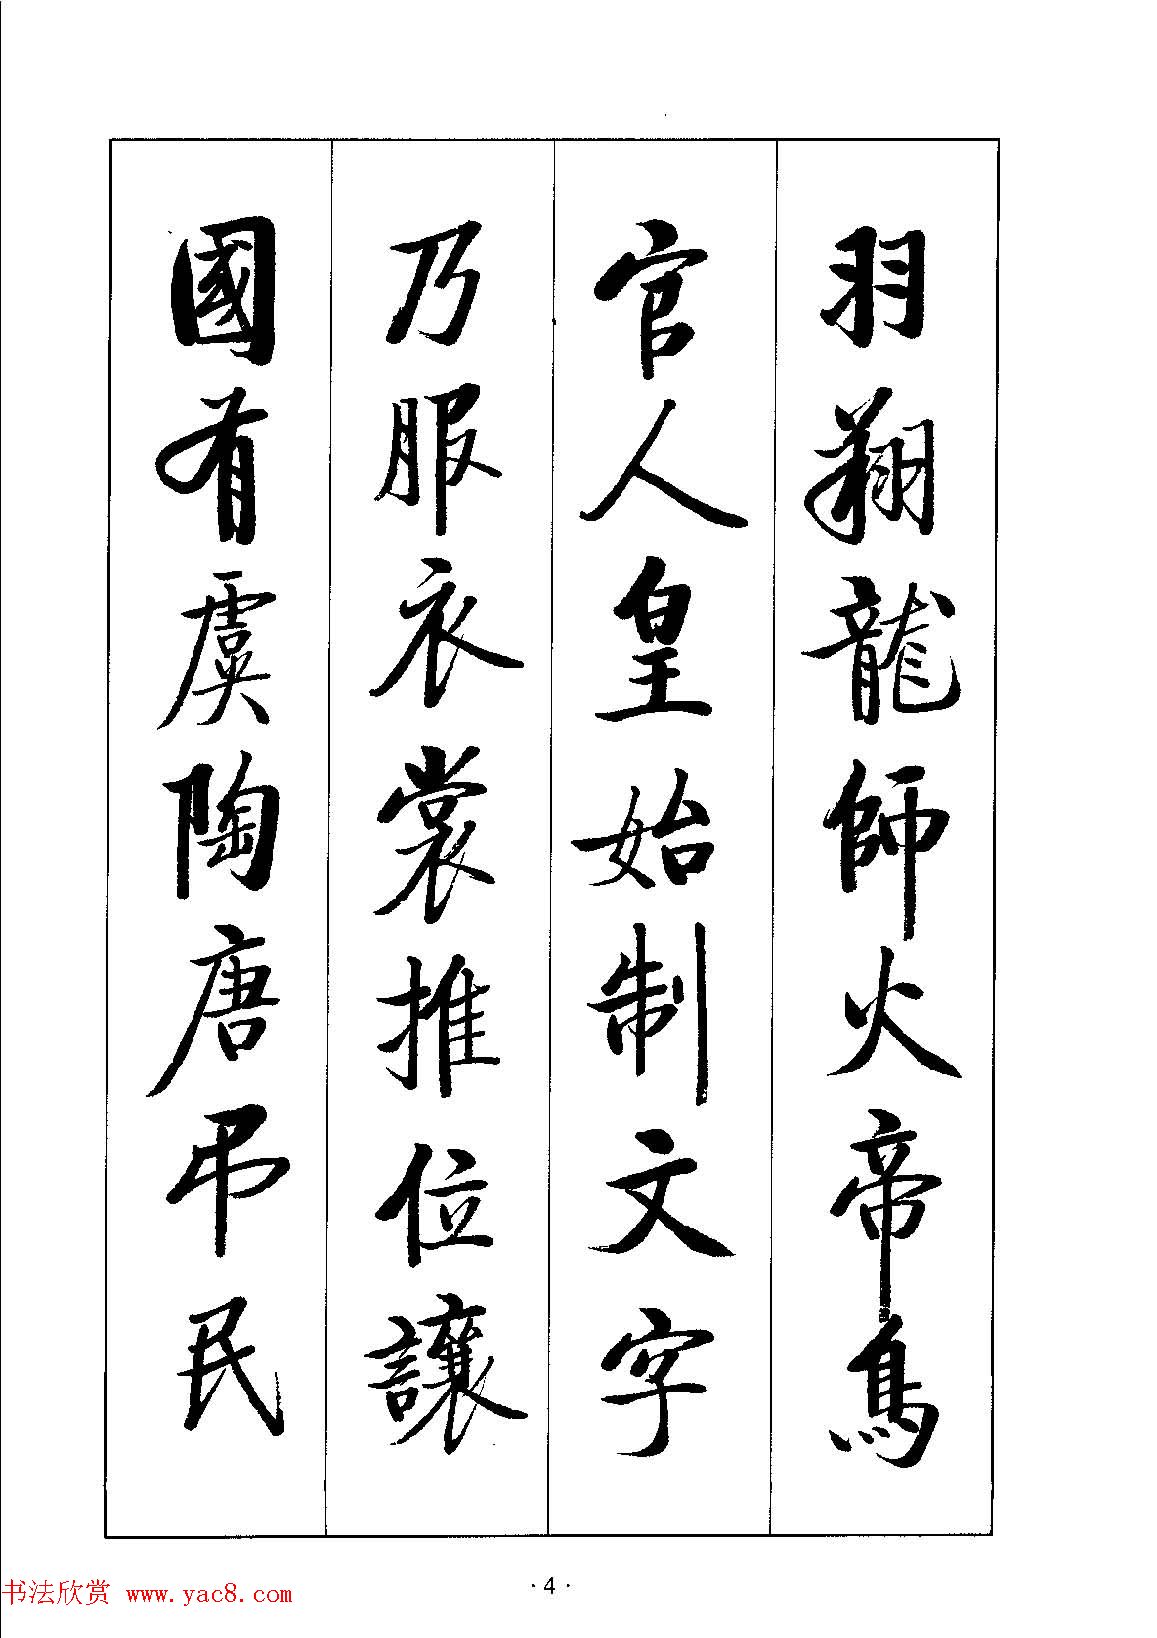 羽翔龍師火帝鳥
官人皇始制文字
乃服衣裳推位讓
國有虞陶唐弔民
·4·
书法欣赏 www.yac8.com